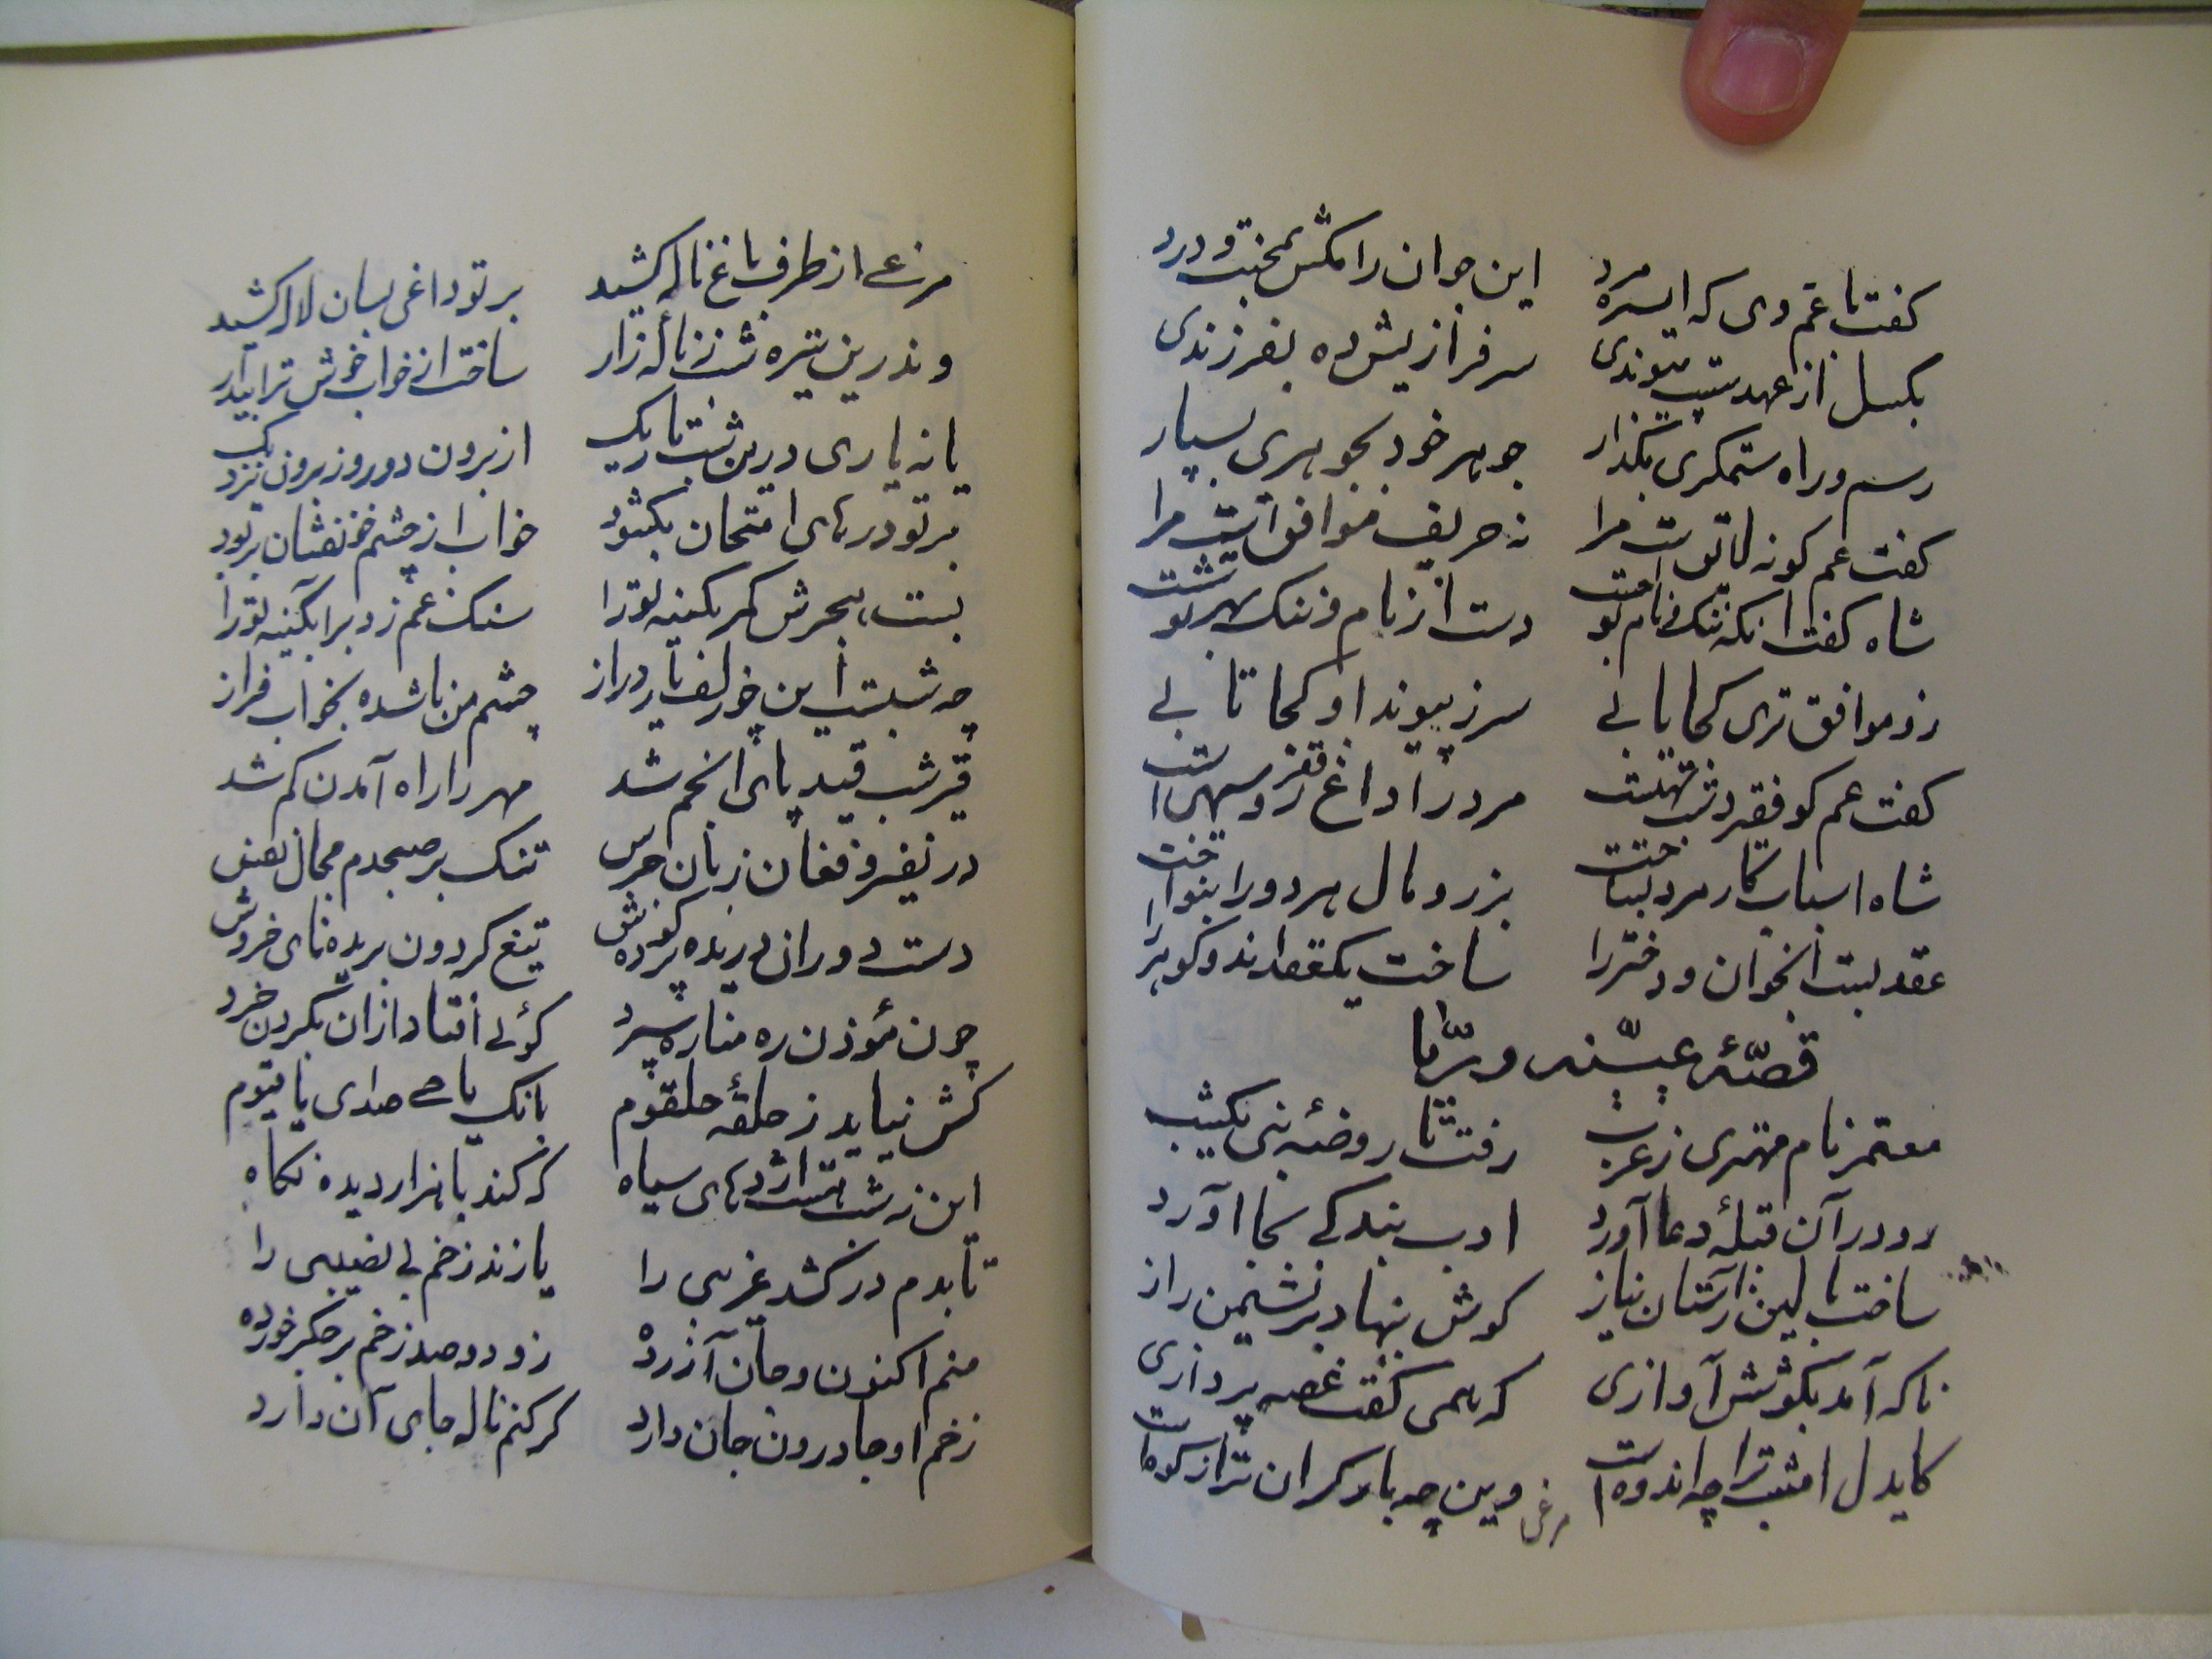 گفت با عم وی که ایسره مرد این جوان را مکش بمحنت و درد
بگسل از عهد سست پیوندی سرفرازیش ده بفرزندی
رسم و راه ستمگری بگذار جوهر خود بجوهری بسپار
گفت عم کو نه لایقست مرا نه حریف موافقست مرا
شاه گفت آنکه ننگ و نام تو دست از نام و ننگ بهر تو
زو موافق تری کجا یابی سر ز پیوند او کجا تابی
گفت عم کو فقیر دست مرد را داغ فقر روسیهی است
شاه اسباب کار مرد بساخت بزر و مال هر دو را بنواخت
عقد بست آنجوان و دختر را ساخت یکعقد آندو گوهر را
قصّهٔ عیینه و ریّا
معتمر نام مهتری ز عرب رفت تا روضهٔ نبی یکشب
رو در آن قبلهٔ دعا آورد ادب بندگی بجا آورد
ساخت بالین ز آستان نیاز گوش بنهاد بر نشیمن راز
ناگه آمد بگوشش آوازی که همی گفت غصه پردازی
کایدل امشب ترا چه اندوه است وین چه بار گران تر از کوه است
مرغی
مرغی از طرف باغ ناله کشید بر تو داغی بسان لاله کشید
وندرین تیره شب ز نالهٔ زار ساخت از خواب خوش ترا بیدار
یا نه یاری درین شب تاریک از برون دور و ز برون نزدیک
بر تو درهای امتحان بگشود خواب از چشم خونفشان بربود
بست هجرش کمر بکینه تو را سنگ غم زد بر آبگینه تو را
چه شبست این چو زلف یار دراز چشم من ناشده بخواب فراز
قیر شب قید پای انجم شد مهر را راه آمدن گم شد
در نفیر و فغان زبان جرس تنگ بر صبحدم مجال نفس
دست دوران دریده پرده گوش تیغ گردون بریده نای خروش
چون مؤذن ره مناره سپرد گوئی افتاد از آن بگردن خرد
کش نیاید ز حلقهٔ حلقوم بانگ یا حی صدای یا قیوم
این نه شب هست اژدهای سیاه که کند با هزار دیده نگاه
تا بدم درکشد غریبی را یا زند زخم بی نصیبی را
منم اکنون و جان آزرده زو دو صد زخم بر جگر خورده
زخم او جا درون جان دارد گر کنم ناله جای آن دارد